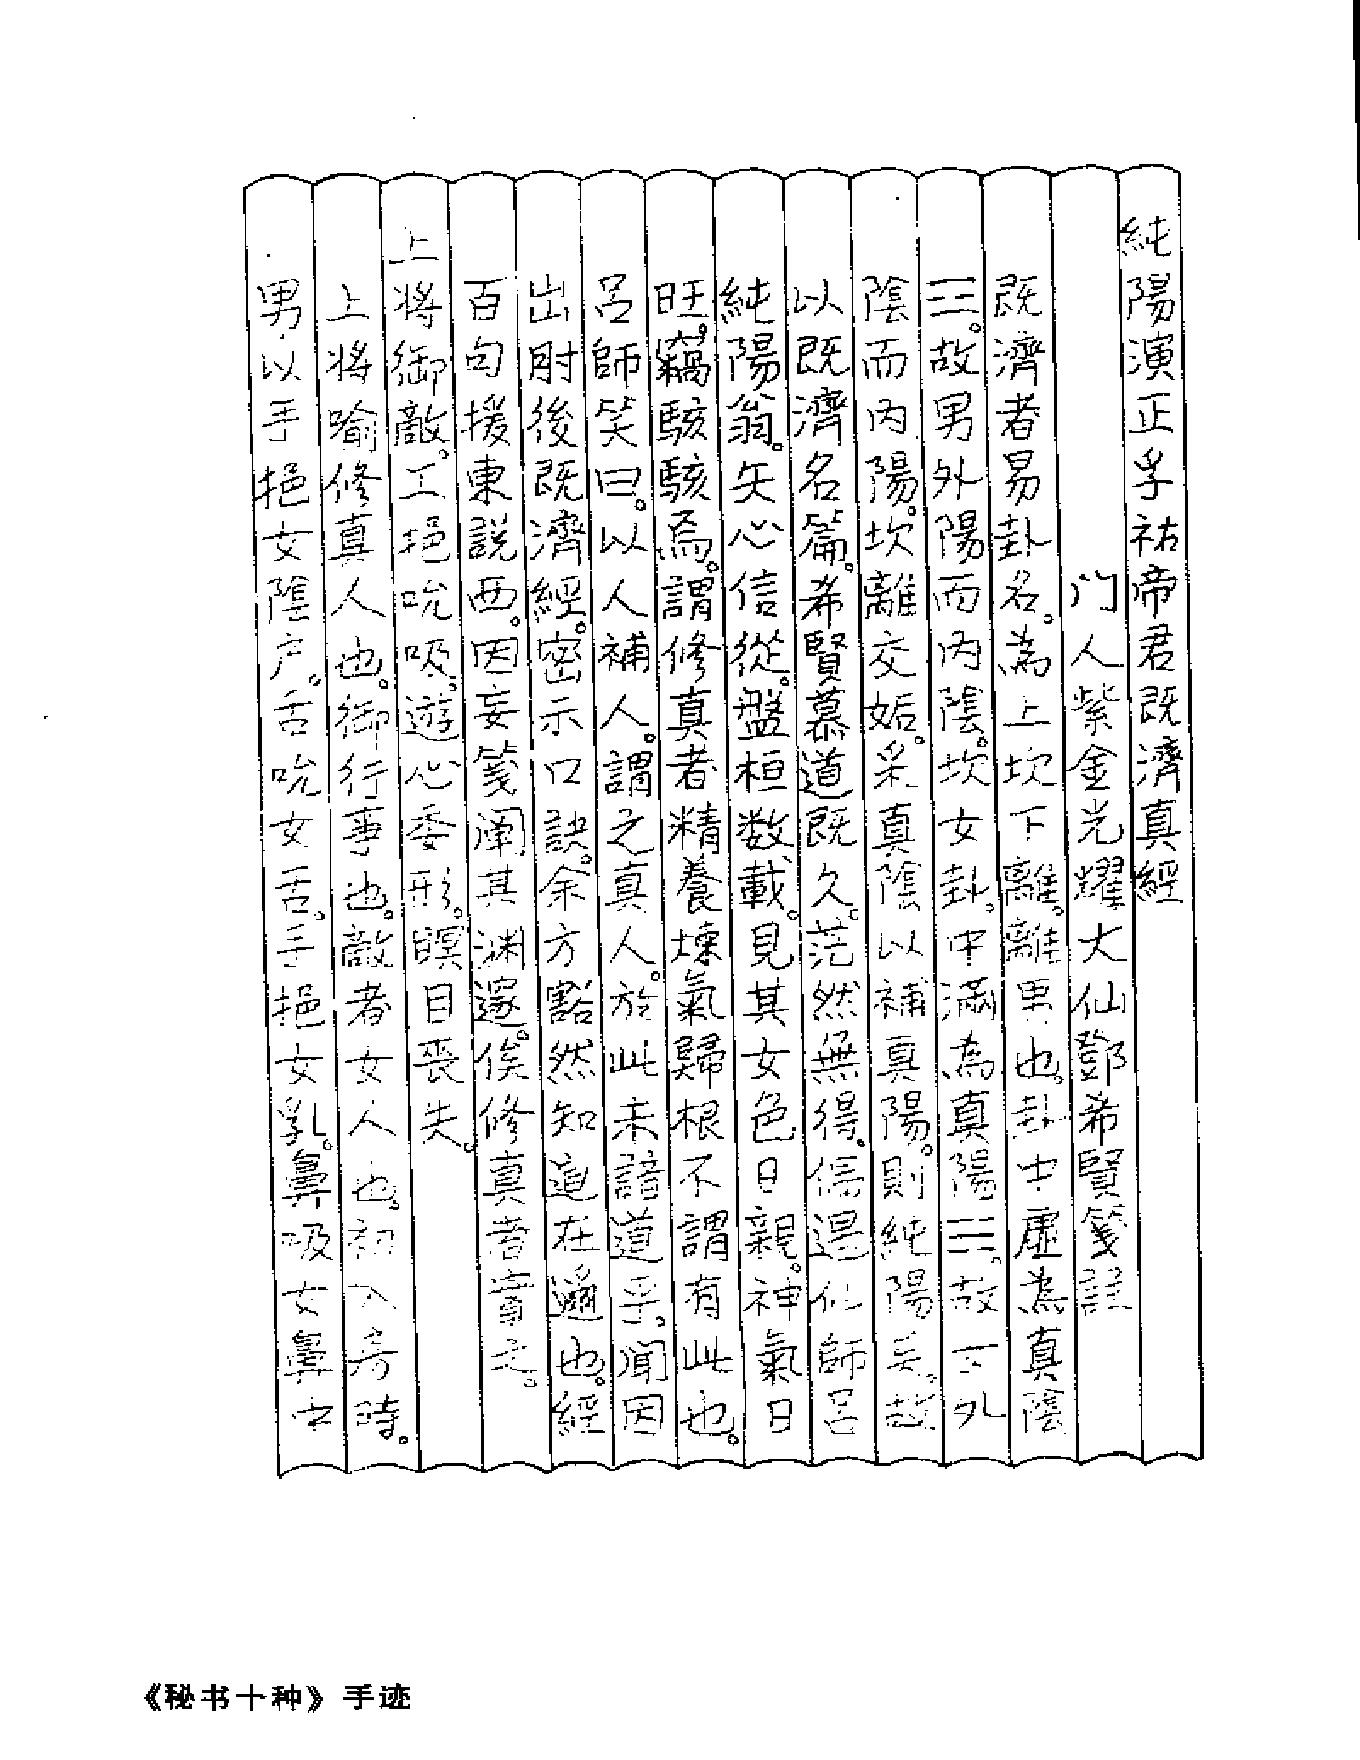 純陽演正孚祐帝君既濟真經
门人紫金光耀大仙鄧希賢箋註
既濟者易卦名。為上坎下離。離男也。卦中虛為真陰
☲。故男外陽而内陰。坎女卦。中滿為真陽☵。故女外
陰而内陽。坎離交姤。采真陰以補真陽。則純陽矣。故
以既濟名篇。希賢慕道既久。茫然無得。偶遇仙師吕
純陽翁。矢心信從。盤桓数載。見其女色日親。神氣日
旺。竊駭駭焉。謂修真者精養煉氣歸根不謂有此也。
吕師笑曰。以人補人。謂之真人。於此未諳道乎。聞因
出肘後既濟經。密示口訣。余方豁然知道在邇也。經
百句援東説西。因妄箋阐其渊邃。俟修真者寳之。
上将御敵。工挹吮吸。遊心委形。瞑目丧失。
上将喻修真人也。御行事也。敵者女人也。初入房時。
男以手挹女陰户。舌吮女舌。手挹女乳。鼻吸女鼻中
《秘书十种》手迹